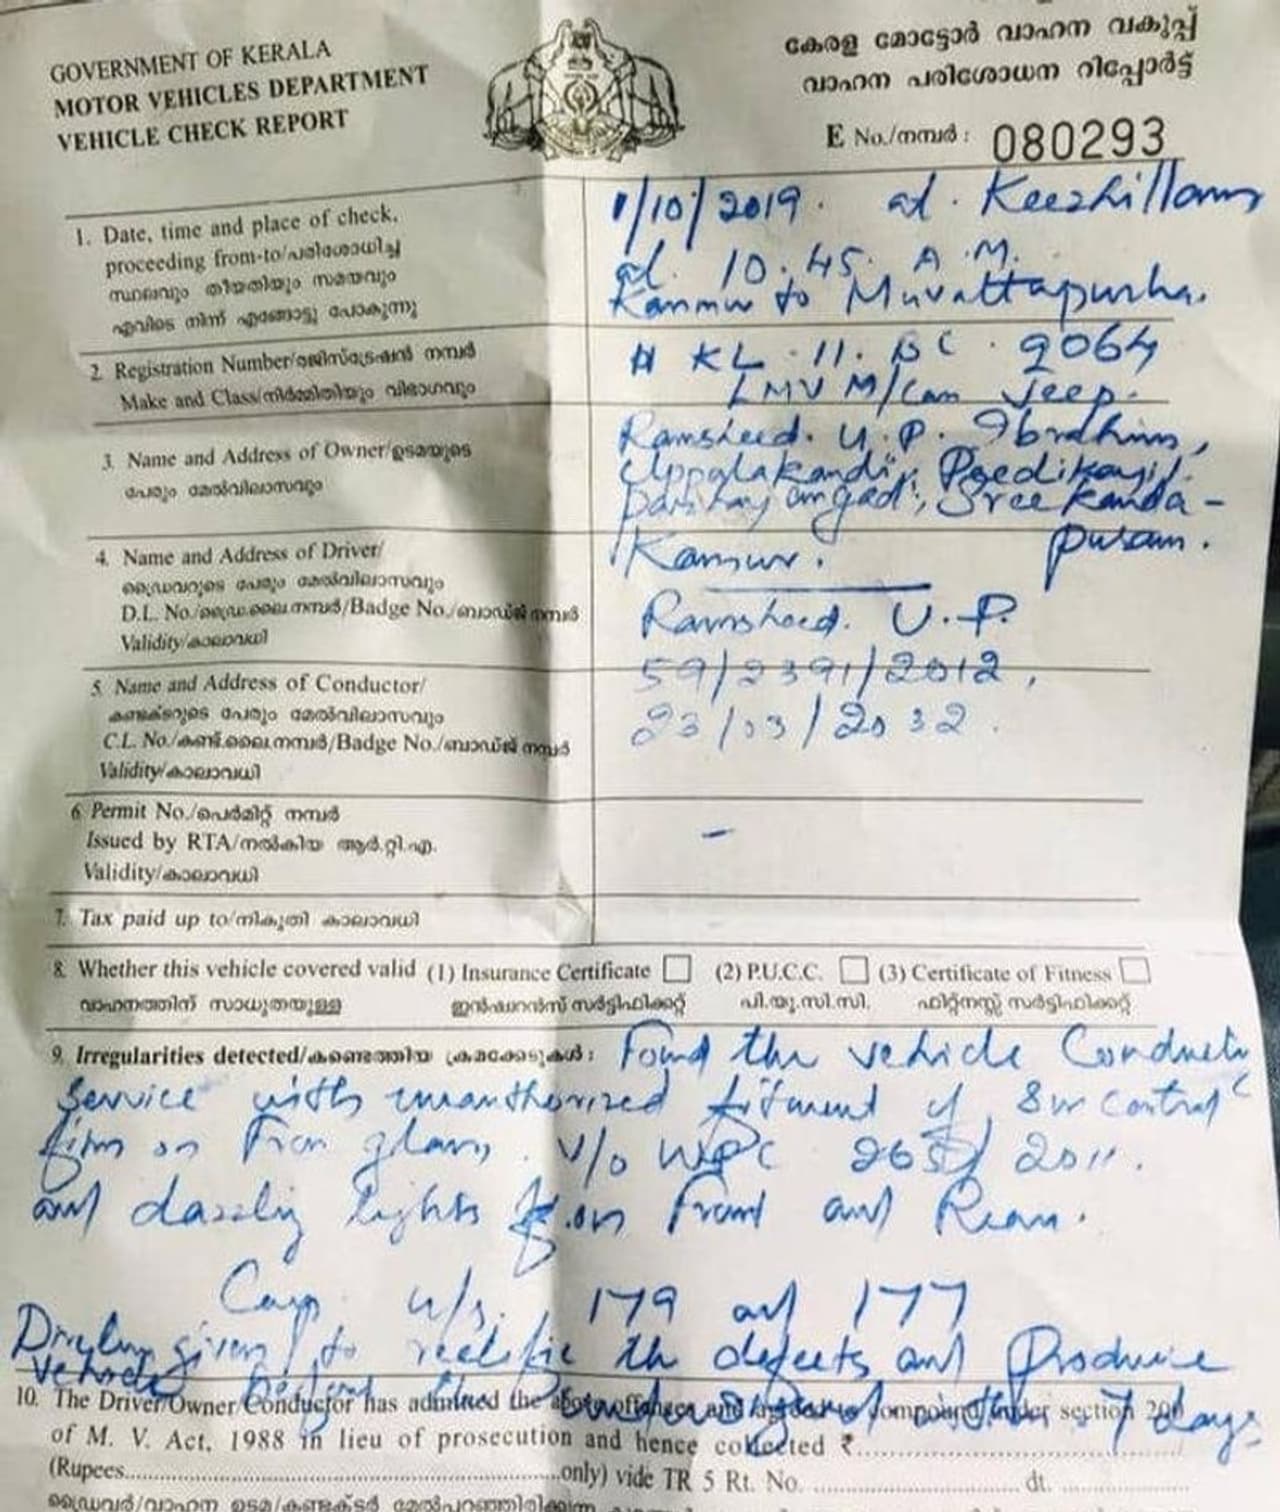 GOVERNMENT OF KERALA
MOTOR VEHICLES DEPARTMENT
VEHICLE CHECK REPORT
കേരള മോട്ടോർ വാഹന വകുപ്പ്
വാഹന പരിശോധന റിപ്പോർട്ട്
E No./നമ്പർ : 080293
1. Date, time and place of check, 1/10/2019. at. Keezhillam
proceeding from-to/പരിശോധിച്ച at. 10.45. A.M.
സ്ഥലവും തീയതിയും സമയവും Kannur to Muvattapuzha.
എവിടെ നിന്ന് എങ്ങോട്ടു പോകുന്നു
2. Registration Number/രജിസ്ട്രേഷൻ നമ്പർ KL. 11. BC. 9064
Make and Class/നിർമ്മിതിയും വിഭാഗവും LMV M/Cam Jeep.
3. Name and Address of Owner/ഉടമയുടെ Ramsheed. U.P. Ibrahim,
പേരും മേൽവിലാസവും Uppalakandi, Peedikayil,
angadi, Sreekanda-
puram.
Kannur.
4. Name and Address of Driver/
ഡ്രൈവറുടെ പേരും മേൽവിലാസവും
D.L. No./ഡ്രൈ.ലൈ.നമ്പർ/Badge No./ബാഡ്ജ് നമ്പർ Ramsheed. U.P.
Validity/കാലാവധി
59/2391/2012,
5. Name and Address of Conductor/ 23/03/2032.
കണ്ടക്ടറുടെ പേരും മേൽവിലാസവും
C.L. No./കണ്ട്.ലൈ.നമ്പർ/Badge No./ബാഡ്ജ് നമ്പർ
Validity/കാലാവധി
6. Permit No./പെർമിറ്റ് നമ്പർ
Issued by RTA/നൽകിയ ആർ.റ്റി.എ. -
Validity/കാലാവധി
7. Tax paid up to/നികുതി കാലാവധി
8. Whether this vehicle covered valid (1) Insurance Certificate (2) P.U.C.C. (3) Certificate of Fitness
വാഹനത്തിന് സാധുതയുള്ള ഇൻഷുറൻസ് സർട്ടിഫിക്കറ്റ് പി.യു.സി.സി. ഫിറ്റ്നസ്സ് സർട്ടിഫിക്കറ്റ്
9. Irregularities detected/കണ്ടെത്തിയ ക്രമക്കേടുകൾ : Found the vehicle Conduct
Service with unauthorized fitment of Sun Control
film on glass. V/o WPC 265/2011.
and dazzling lights on Front and Rear.
u/s. 179 and 177
given to rectific the defects and Produce
Vehicle before within 7 days
10. The Driver/Owner/Conductor has admitted the above offences and agreed to compound under section 200
of M. V. Act, 1988 in lieu of prosecution and hence collected ₹
(Rupees only) vide TR 5 Rt. No. dt.
ഡ്രൈവർ/വാഹന ഉടമ/കണ്ടക്ടർ